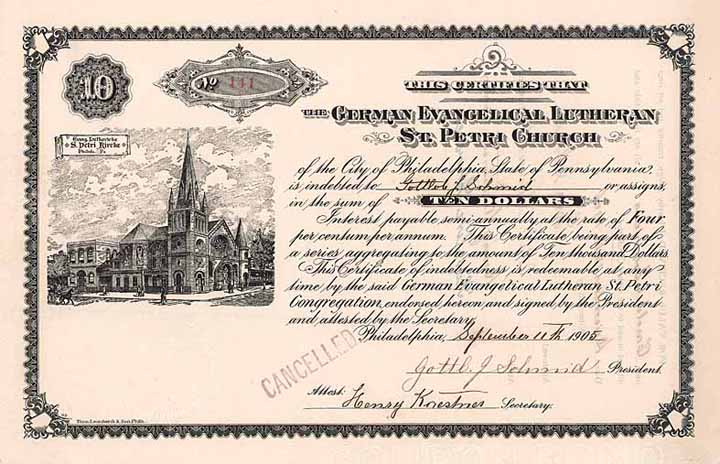 10
No 141
Evang. Lutherische
St. Petri Kirche
Philada. Pa.
THIS CERTIFIES THAT
THE GERMAN EVANGELICAL LUTHERAN
ST. PETRI CHURCH
of the City of Philadelphia, State of Pennsylvania,
is indebted to Gottlob J. Schmid or assigns,
in the sum of TEN DOLLARS
Interest payable semi-annually at the rate of Four
per centum per annum. This Certificate being part of
a series aggregating to the amount of Ten thousand Dollars.
This Certificate of indebtedness is redeemable at any
time by the said German Evangelical Lutheran St. Petri
Congregation, endorsed hereon and signed by the President
and attested by the Secretary.
Philadelphia, September 11th 1905
CANCELLED
Gottl. J. Schmid President.
Attest:
Henry Koestner Secretary.